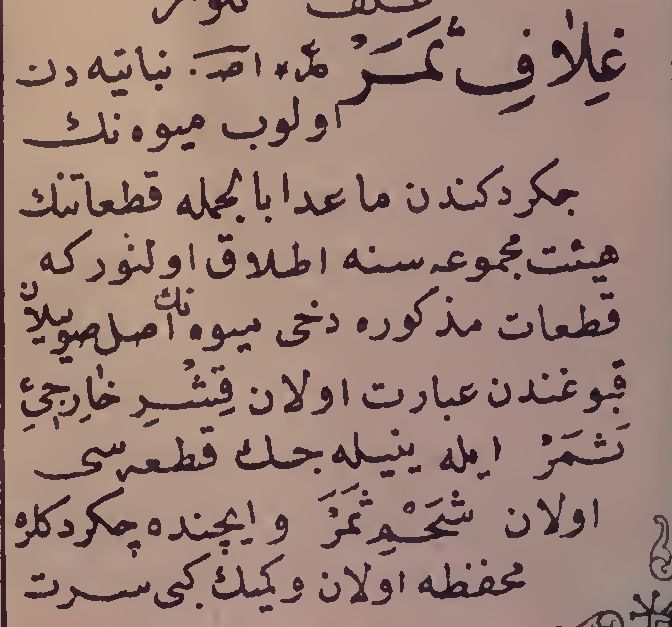 غِلَافِ ثَمَرْ مر٭ اصـ. نباتیه دن
اولوب میوه نك
جکردکندن ماعدا بالجمله قطعاتنك
هیئت مجموعه سنه اطلاق اولنور که
قطعات مذکوره دخی میوه نك اصل صویلان
قبوغندن عبارت اولان قِشْرِ خَارِجِئِ
ثَمَرْ ایله ینیله جك قطعه سی
اولان شَحْمِ ثَمَرْ و ایچنده چکردکلره
محفظه اولان و کمیك کبی سرت